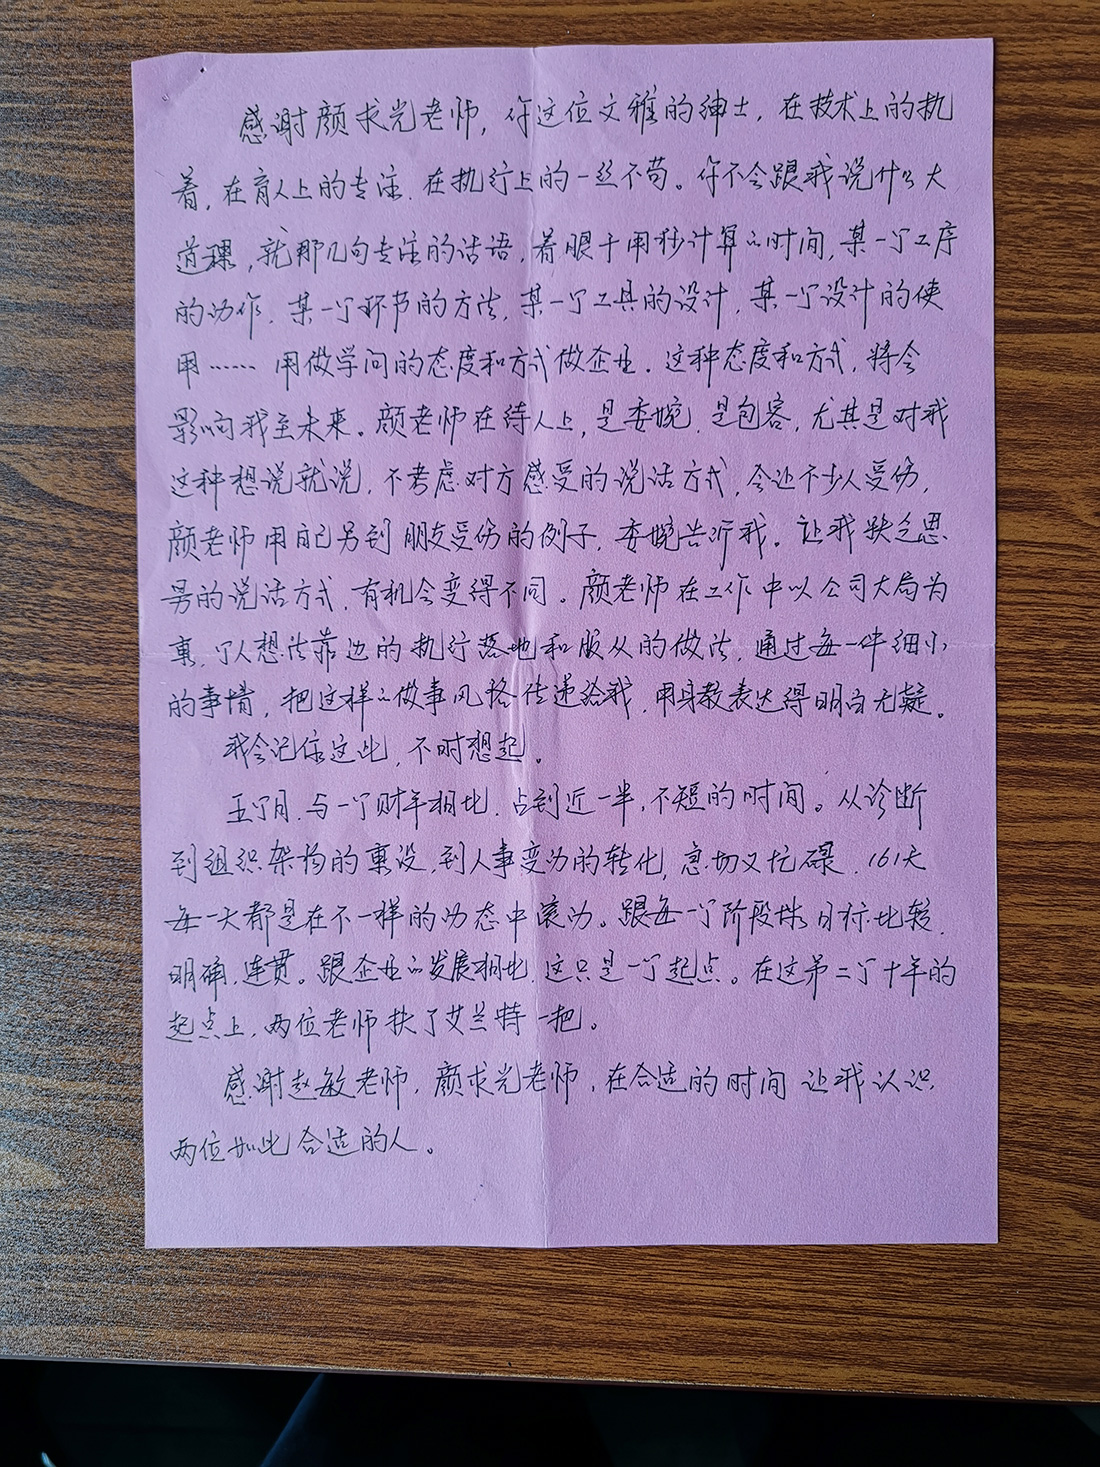 感谢颜求光老师，你这位文雅的绅士，在技术上的执
着，在育人上的专注，在执行上的一丝不苟。你不会跟我说什么大
道理，就那几句专注的话语，着眼于用秒计算的时间，某一个工序
的动作，某一个环节的方法，某一个工具的设计，某一个设计的使
用……用做学问的态度和方式做企业。这种态度和方式，将会
影响我至未来。颜老师在待人上，是委婉，是包容，尤其是对我
这种想说就说，不考虑对方感受的说话方式，会让不少人受伤，
颜老师用自己另到朋友受伤的例子，委婉告诉我。让我缺乏思
男的说话方式，有机会变得不同。颜老师在工作中以公司大局为
重，个人想法靠边的执行落地和服从的做法，通过每一件细小
的事情，把这样的做事风格传递给我，用身教表达得明白无疑。
我会记住这些，不时想起。
五个月，与一个财年相比，占到近一半，不短的时间。从诊断
到组织架构的重设，到人事变动的转化，急切又忙碌，161天
每一天都是在不一样的动态中滚动。跟每一个阶段性目标比较，
明确，连贯。跟企业的发展相比，这只是一个起点。在这第二个十年的
起点上，两位老师扶了艾兰特一把。
感谢赵敏老师，颜求光老师，在合适的时间让我认识
两位如此合适的人。